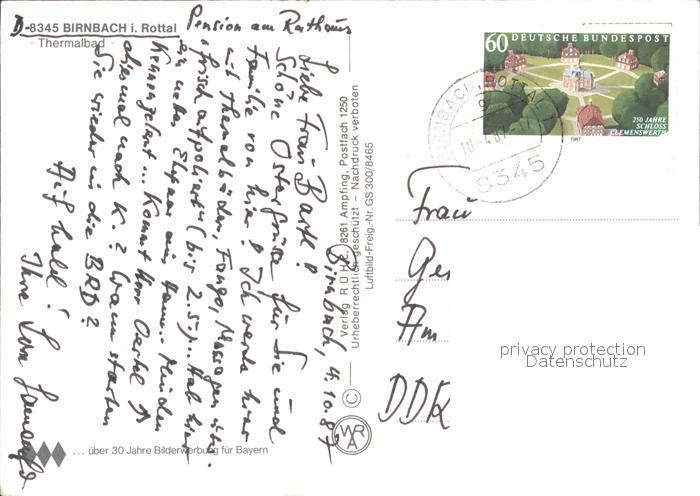 D-8345 BIRNBACH i. Rottal Pension am Rathaus
Thermalbad
Birnbach, 4.10.87
Liebe Frau Bartl!
Schöne Ostergrüße für Sie und
Familie von hier! Ich werde hier
mit Thermalbäden, Fango, Massagen
aufpoliert" (bis 2.5.)... Hab hier
ein nettes Ehepaar aus
Kennengelernt... Kommt Herr Oertel
nach K.? Wann starten
Sie wieder in die BRD?
Auf bald!
Ihre
... über 30 Jahre Bilderwerbung für Bayern
Verlag RÜHL, 8261 Ampfing, Postfach 1250
Urheberrechtlich geschützt – Nachdruck verboten
Luftbild-Freig.-Nr. GS 300/8465
©
WRA
60 DEUTSCHE BUNDESPOST
250 JAHRE
SCHLOSS
CLEMENSWERTH
1987
BIRNBACH, ROTTAL
8345
Frau
Ge
Am
DDR
privacy protection
Datenschutz